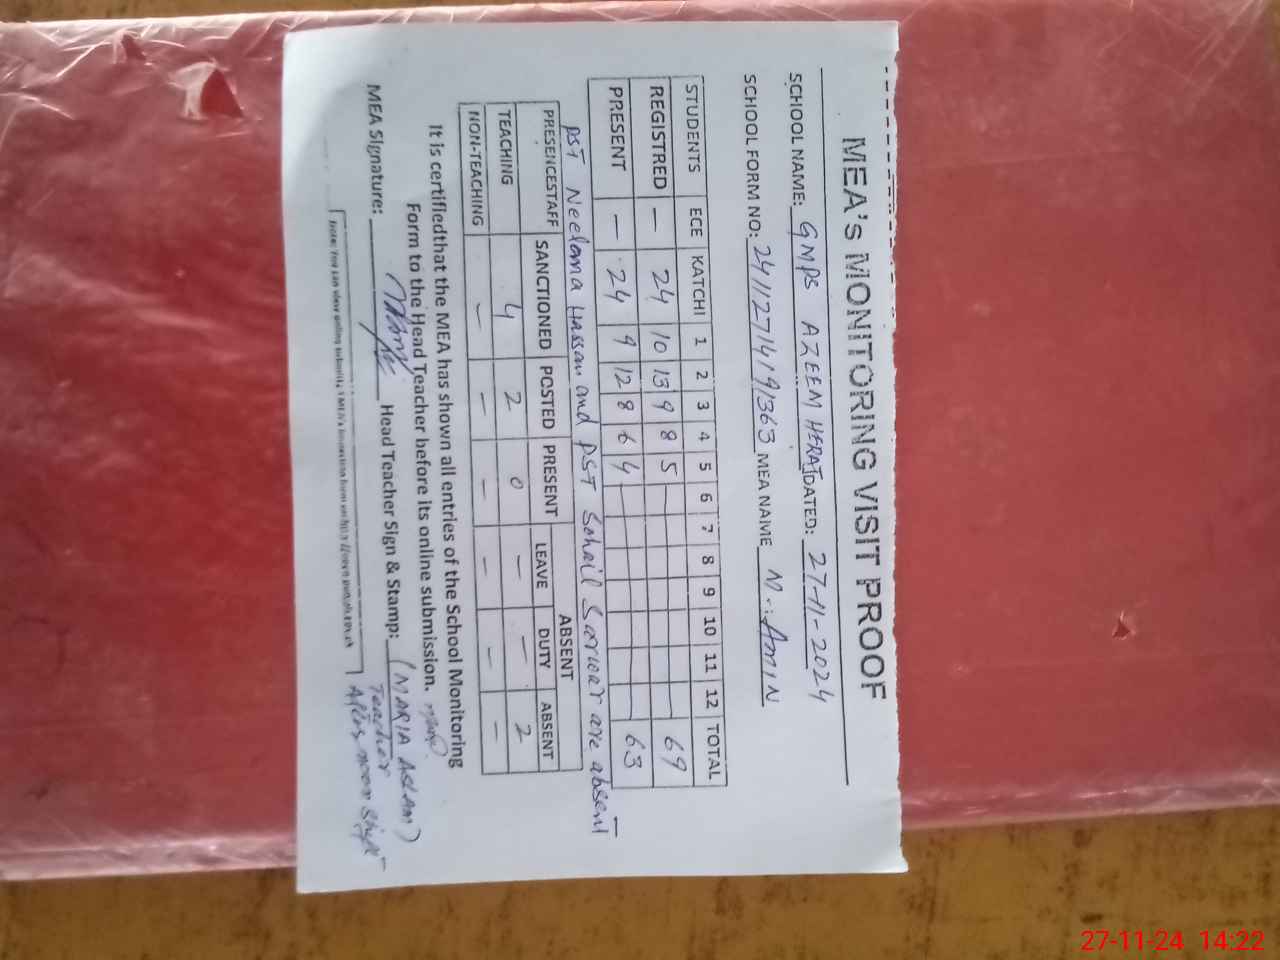 MEA's MONITORING VISIT PROOF
SCHOOL NAME: GMPS AZEEM HERAJ DATED: 27-11-2024
SCHOOL FORM NO: 241127141919363 MEA NAME M. Amin
STUDENTS ECE KATCHI 1 2 3 4 5 6 7 8 9 10 11 12 TOTAL
REGISTRED — 24 10 13 9 8 5 69
PRESENT — 24 9 12 8 6 4 63
PST Neelama Hassan and PST Sohail Sarwar are absent
PRESENCESTAFF SANCTIONED POSTED PRESENT ABSENT
LEAVE DUTY ABSENT
TEACHING 4 2 0 — — 2
NON-TEACHING — — — — — —
It is certifiedthat the MEA has shown all entries of the School Monitoring
Form to the Head Teacher before its online submission.
MEA Signature: Head Teacher Sign & Stamp: (MARIA ASLAM)
Teacher
After noon Shift
Note: You can view
27-11-24 14:22